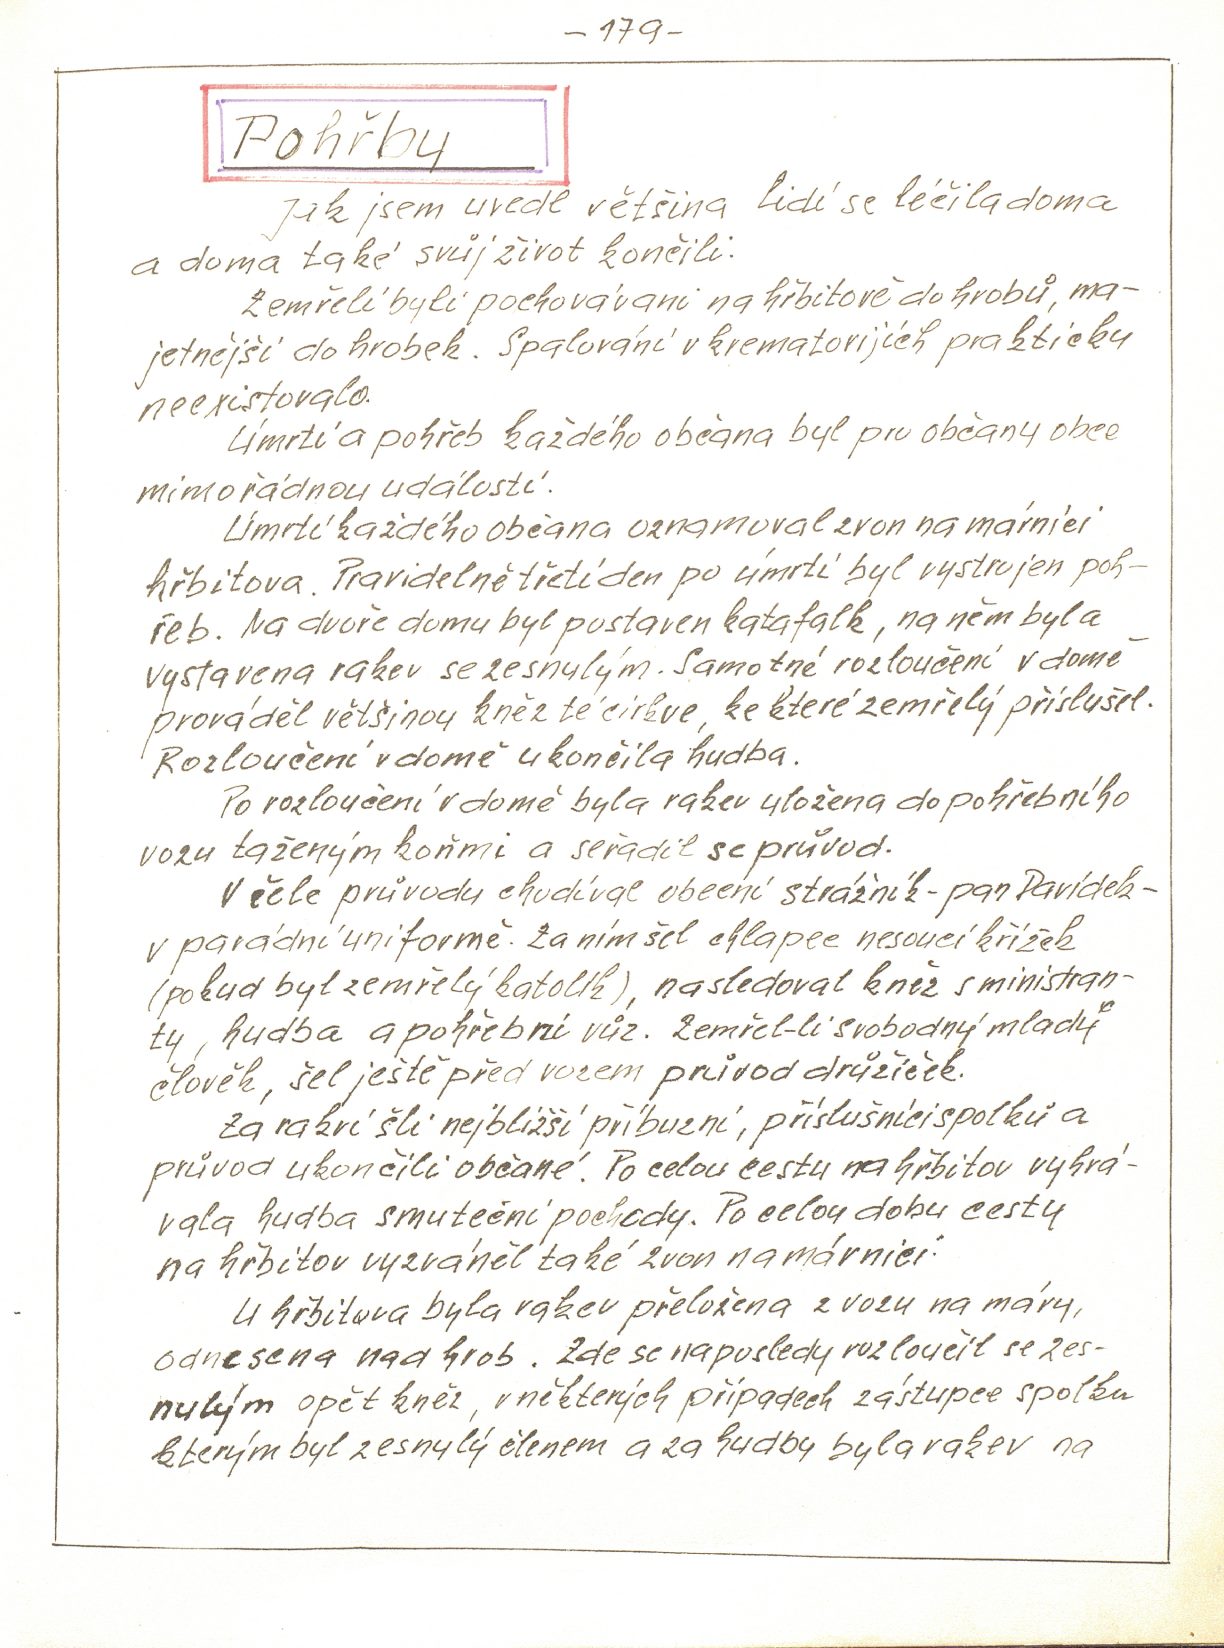 - 179 -
Pohřby
Jak jsem uvedl většina lidí se léčila doma
a doma také svůj život končili.
Zemřelí byli pochováváni na hřbitově do hrobů, ma-
jetnější do hrobek. Spalování v krematorijích prakticky
neexistovalo.
Úmrtí a pohřeb každého občana byl pro občany obce
mimořádnou událostí.
Úmrtí každého občana oznamoval zvon na márnici
hřbitova. Pravidelně třetí den po úmrtí byl vystrojen poh-
řeb. Na dvoře domu byl postaven katafalk, na něm byla
vystavena rakev se zesnulým. Samotné rozloučení v domě
prováděl většinou kněz té církve, ke které zemřelý příslušel.
Rozloučení v domě ukončila hudba.
Po rozloučení v domě byla rakev uložena do pohřebního
vozu taženým koňmi a seřadil se průvod.
V čele průvodu chodíval obecní strážník - pan Davídek -
v parádní uniformě. Za ním šel chlapec nesoucí křížek
(pokud byl zemřelý katolík), nasledoval kněz s ministran-
ty, hudba a pohřební vůz. Zemřel-li svobodný mladý
člověk, šel ještě před vozem průvod družiček.
Za rakví šli nejbližší příbuzní, příslušníci spolků a
průvod ukončili občané. Po celou cestu na hřbitov vyhrá-
vala hudba smuteční pochody. Po celou dobu cesty
na hřbitov vyzváněl také zvon na márnici.
U hřbitova byla rakev přeložena z vozu na máry,
odnesena nad hrob. Zde se naposledy rozloučil se zes-
nulým opět kněz, v některých případech zástupce spolku
kterým byl zesnulý členem a za hudby byla rakev na